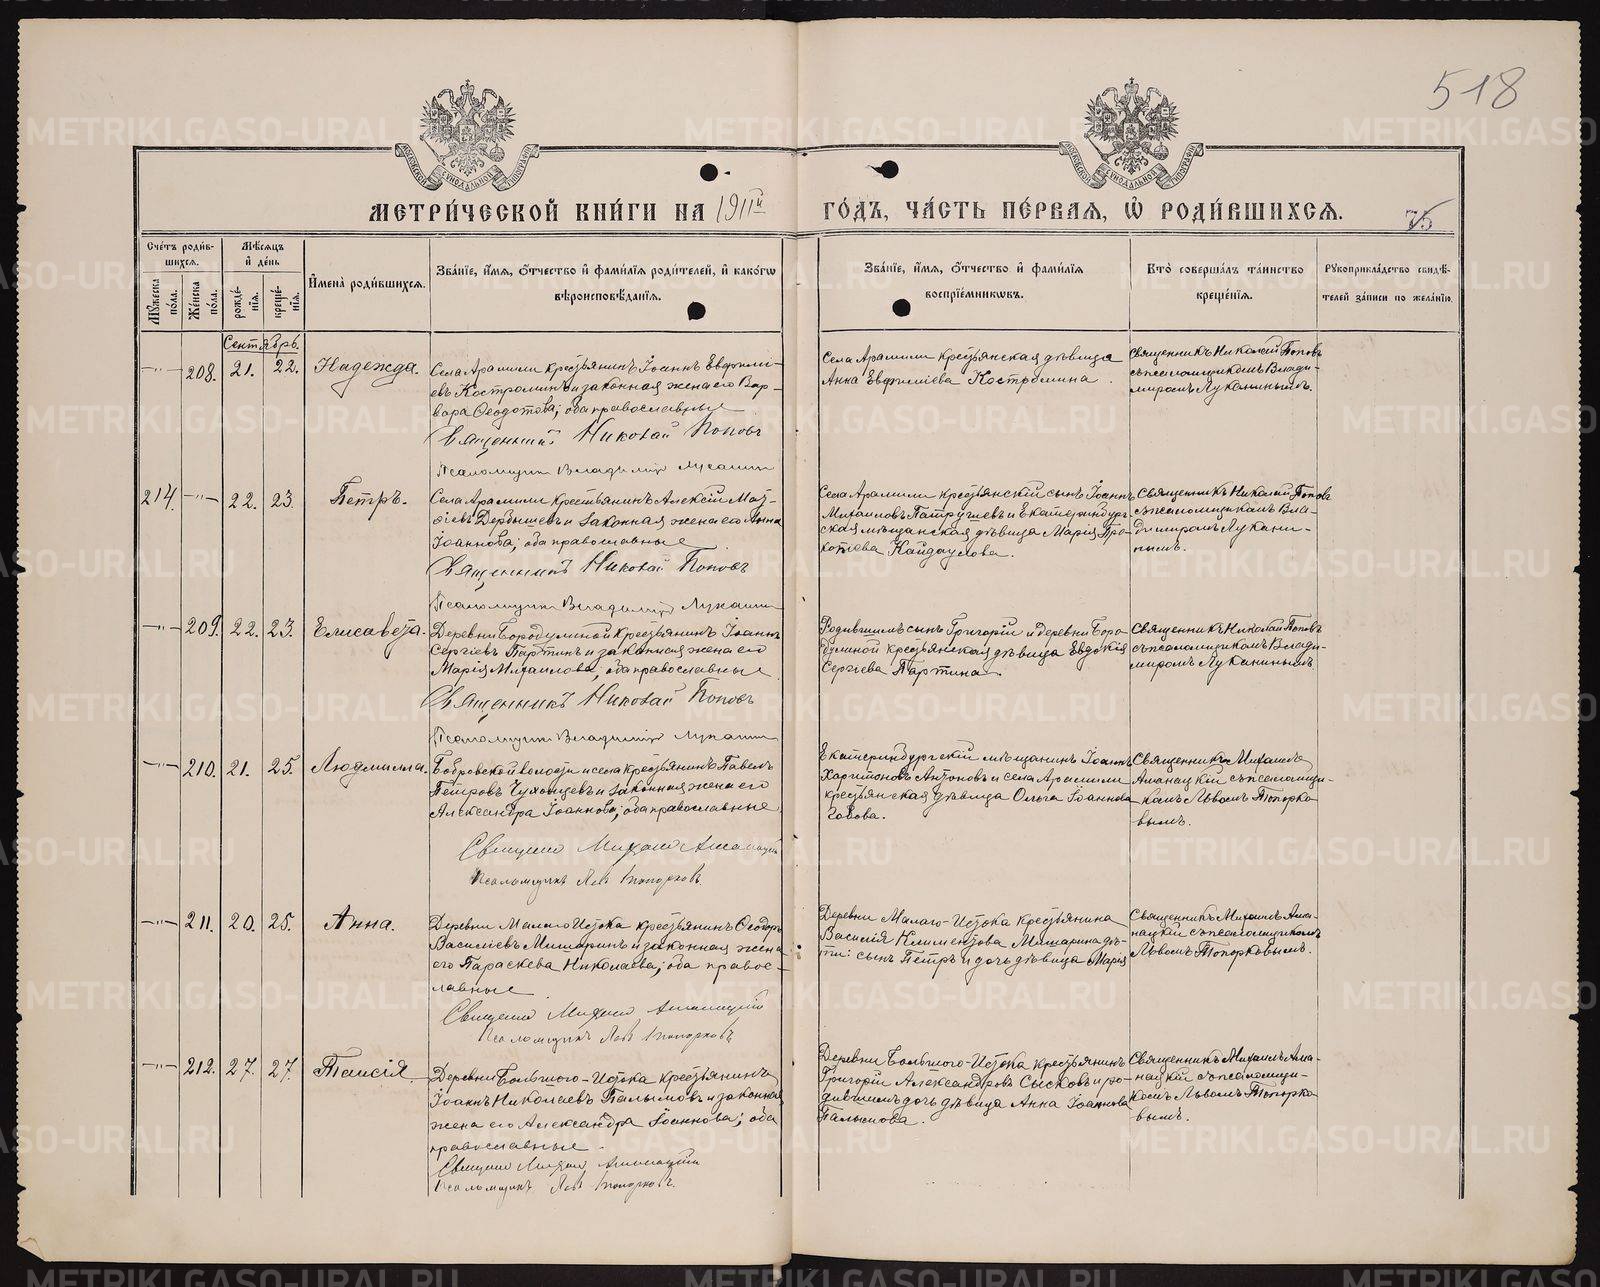 518
МЕТРИЧЕСКОЙ КНИГИ НА 1911й ГОДЪ, ЧАСТЬ ПЕРВАЯ, Ѡ РОДИВШИХСЯ.
75
Счетъ родившихся.
Мужеска пола.
Женска пола.
Мѣсяцъ и день
рожденія.
крещенія.
Имена родившихся.
Званіе, имя, отчество и фамилія родителей, и какогѡ
вѣроисповѣданія.
Званіе, имя, отчество и фамилія
воспріемникѡвъ.
Кто совершалъ таинство
крещенія.
Рукоприкладство свидѣ-
телей записи по желанію.
Сентябрь.
—"— 208. 21. 22. Надежда.
Села Арамили крестьянинъ Іоаннъ Евфими-
евъ Костроминъ и законная жена его Вар-
вара Ѳеодотова; оба православные
Священникъ Николай Поповъ
Псаломщикъ Владиміръ Луканин
Села Арамили крестьянская дѣвица
Анна Евфиміева Костромина.
Священникъ Николай Поповъ
съ псаломщикомъ Влади-
міромъ Луканинымъ.
214. —"— 22. 23. Петръ.
Села Арамили крестьянинъ Алексій Мат-
ѳіевъ Дербышевъ и законная жена его Анна
Іоаннова; оба православные
Священникъ Николай Поповъ
Псаломщикъ Владиміръ Луканин
Села Арамили крестьянскій сынъ Іоаннъ
Михаиловъ Патрушевъ и Екатеринбург-
ская мѣщанская дѣвица Марія Про-
копіева Кайдаулова.
Священникъ Николай Поповъ
съ псаломщикомъ Вла-
диміромъ Лукани-
нымъ.
—"— 209. 22. 23. Елисавета.
Деревни Бородулиной крестьянинъ Іоаннъ
Сергіевъ Партинъ и законная жена его
Марія Михаилова; оба православные
Священникъ Николай Поповъ
Псаломщикъ Владиміръ Луканин
Родившимъ сынъ Григорій и деревни Боро-
дулиной крестьянская дѣвица Евдокія
Сергіева Партина.
Священникъ Николай Поповъ
съ псаломщикомъ Влади-
міромъ Луканинымъ.
—"— 210. 21. 25. Людмилла.
Бобровской волости и села крестьянинъ Павелъ
Петровъ и законная жена его
Александра Іоаннова; оба православные
Священ Михаил Аманацкій
Псаломщикъ Левъ Топорковъ.
Екатеринбургскій мѣщанинъ Іоаннъ
Харитоновъ Антоновъ и села Арамили
крестьянская дѣвица Ольга Іоаннова
Священникъ Михаилъ
Аманацкій съ псаломщи-
комъ Львомъ Топорко-
вымъ.
—"— 211. 20. 25. Анна.
Деревни Малаго-Истока крестьянинъ Ѳеодоръ
Василіевъ Мишаринъ и законная жена
его Параскева Николаева; оба правос-
лавные
Священ Михаил Аманацкій
Псаломщикъ Левъ Топорковъ
Деревни Малаго-Истока крестьянина
Василія Климентова Мишарина дѣ-
ти: сынъ Петръ и дочь дѣвица Марія
Священникъ Михаилъ Ама-
нацкій съ псаломщикомъ
Львомъ Топорковымъ.
—"— 212. 27. 27. Таисія.
Деревни Большого-Истока крестьянинъ
Іоаннъ Николаевъ Палымовъ и законная
жена его Александра Іоаннова; оба
православные.
Священ Михаил Аманацкій
Псаломщикъ Левъ Топорковъ.
Деревни Большого-Истока крестьянинъ
Григорій Александровъ Сысковъ и ро-
дившимъ дочь дѣвица Анна Іоаннова
Палымова.
Священникъ Михаилъ Ама-
нацкій съ псаломщи-
комъ Львомъ Топорко-
вымъ.
METRIKI.GASO-URAL.RU